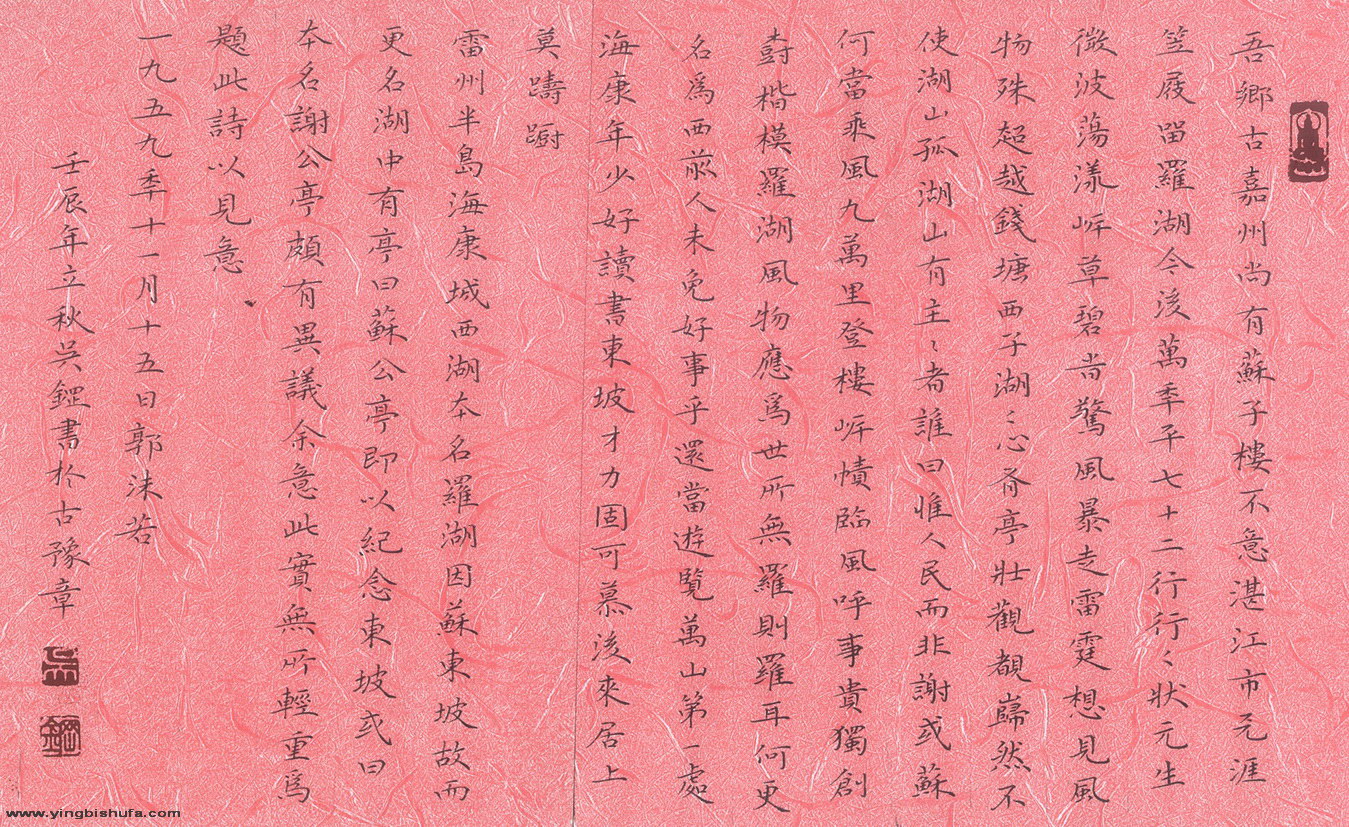 吾鄉古嘉州尚有蘇子樓不意湛江市无涯
笠屐留羅湖今後萬季平七十二行行〻狀元生
微波蕩漾岸草碧尚驚風暴走雷霆想見風
物殊超越錢塘西子湖〻心有亭壯觀覩巋然不
使湖山孤湖山有主〻者誰曰惟人民而非謝或蘇
何當乘風九萬里登樓岸幘臨風呼事貴獨創
尌楷模羅湖風物應爲世所無羅則羅耳何更
名爲西前人未免好事乎還當遊覽萬山第一處
海康年少好讀書東坡才力固可慕後來居上
莫躊躕
雷州半島海康城西湖本名羅湖因蘇東坡故而
更名湖中有亭曰蘇公亭即以紀念東坡或曰
本名謝公亭頗有異議余意此實無所輕重爲
題此詩以見意
一九五九季十一月十五日郭沫若
壬辰年立秋吴鋼書於古豫章
吴
鋼
www.yingbishufa.com